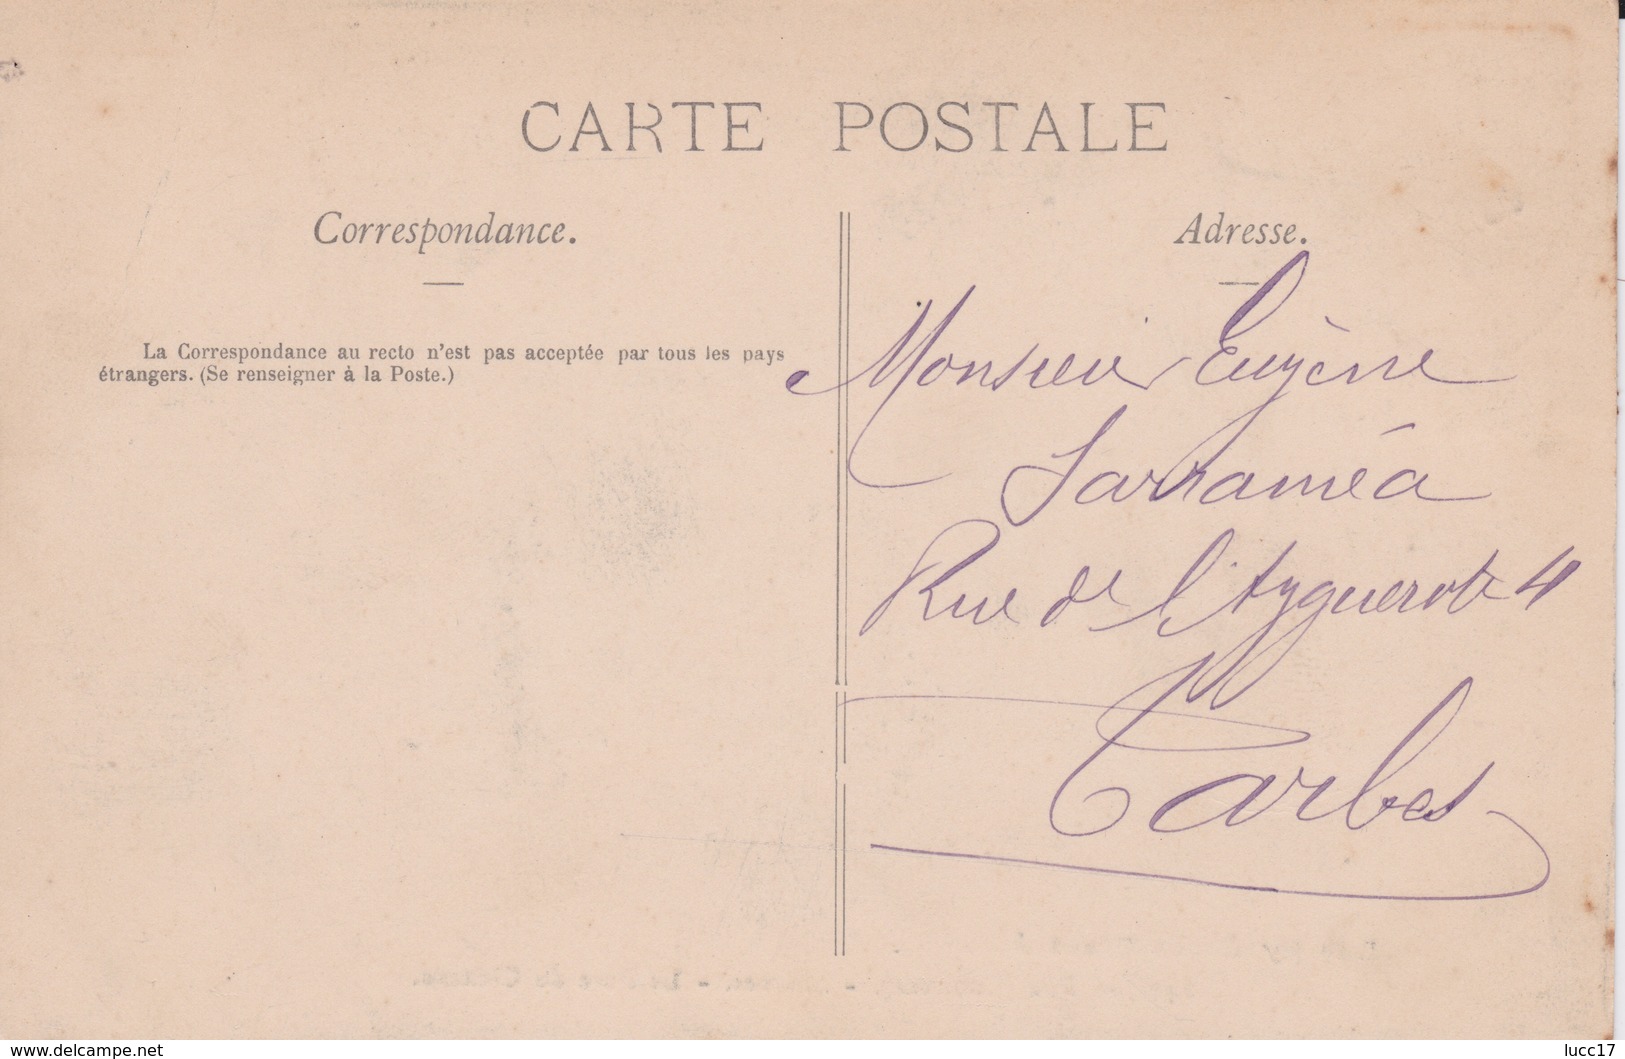 CARTE POSTALE
Correspondance.
Adresse.
La Correspondance au recto n'est pas acceptée par tous les pays
étrangers. (Se renseigner à la Poste.)
Monsieur Eugène
Sarraméa
Rue de l'Ayguerote 4
Tarbes
www.delcampe.net
lucc17